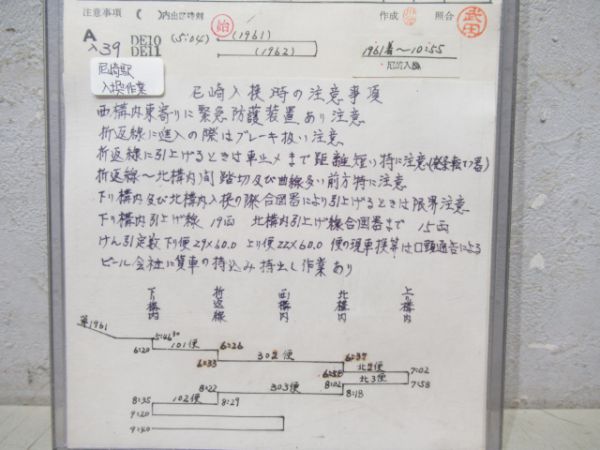 注意事項 ( )内出区時刻 作成 照合 武田
始
A入39 DE10 (5:04) (1961)
DE11 (1962)
1961着～10:55
尼崎入換
尼崎駅
入換作業
尼崎入換時の注意事項
西構内東寄りに緊急防護装置あり注意
折返線に進入の際はブレーキ扱い注意
折返線に引上げるときは車止メまで距離短い特に注意
折返線～北構内間踏切及び曲線多い前方特に注意
下り構内及び北構内入換の際合図器により引上げるときは限界注意
下り構内引上げ線 19両 北構内引上げ線合図器まで 15両
けん引定数下り便29×60.0 上り便22×60.0 便の現車換算は口頭通告による
ビール会社に貨車の持込み持出し作業あり
下り構内 折返線 西構内 北構内 上り構内
単1961
5:46³⁰
6:20 101便 6:26
6:33 302便 6:37
6:55 北2便 7:02
8:02 北3便 7:58
8:22 303便 8:13
8:35 102便 8:29
9:20
9:40